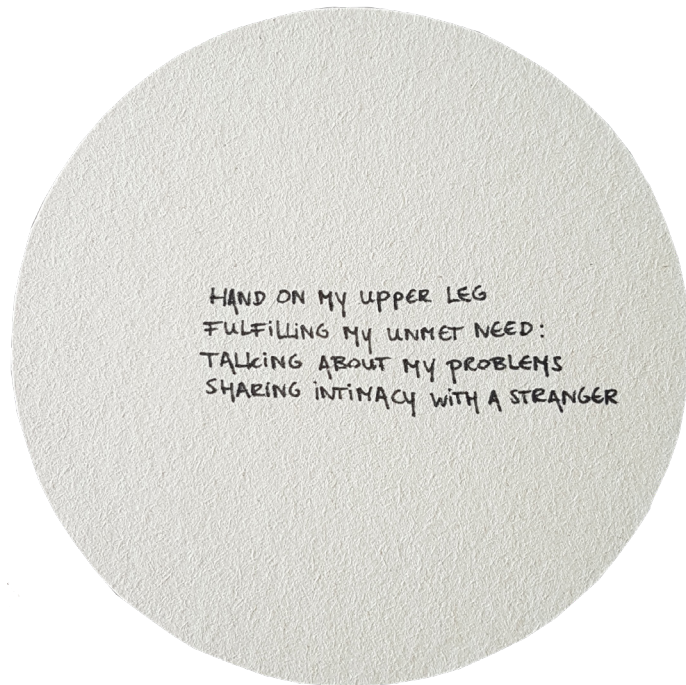 HAND ON MY UPPER LEG
FULFILLING MY UNMET NEED:
TALKING ABOUT MY PROBLEMS
SHARING INTIMACY WITH A STRANGER